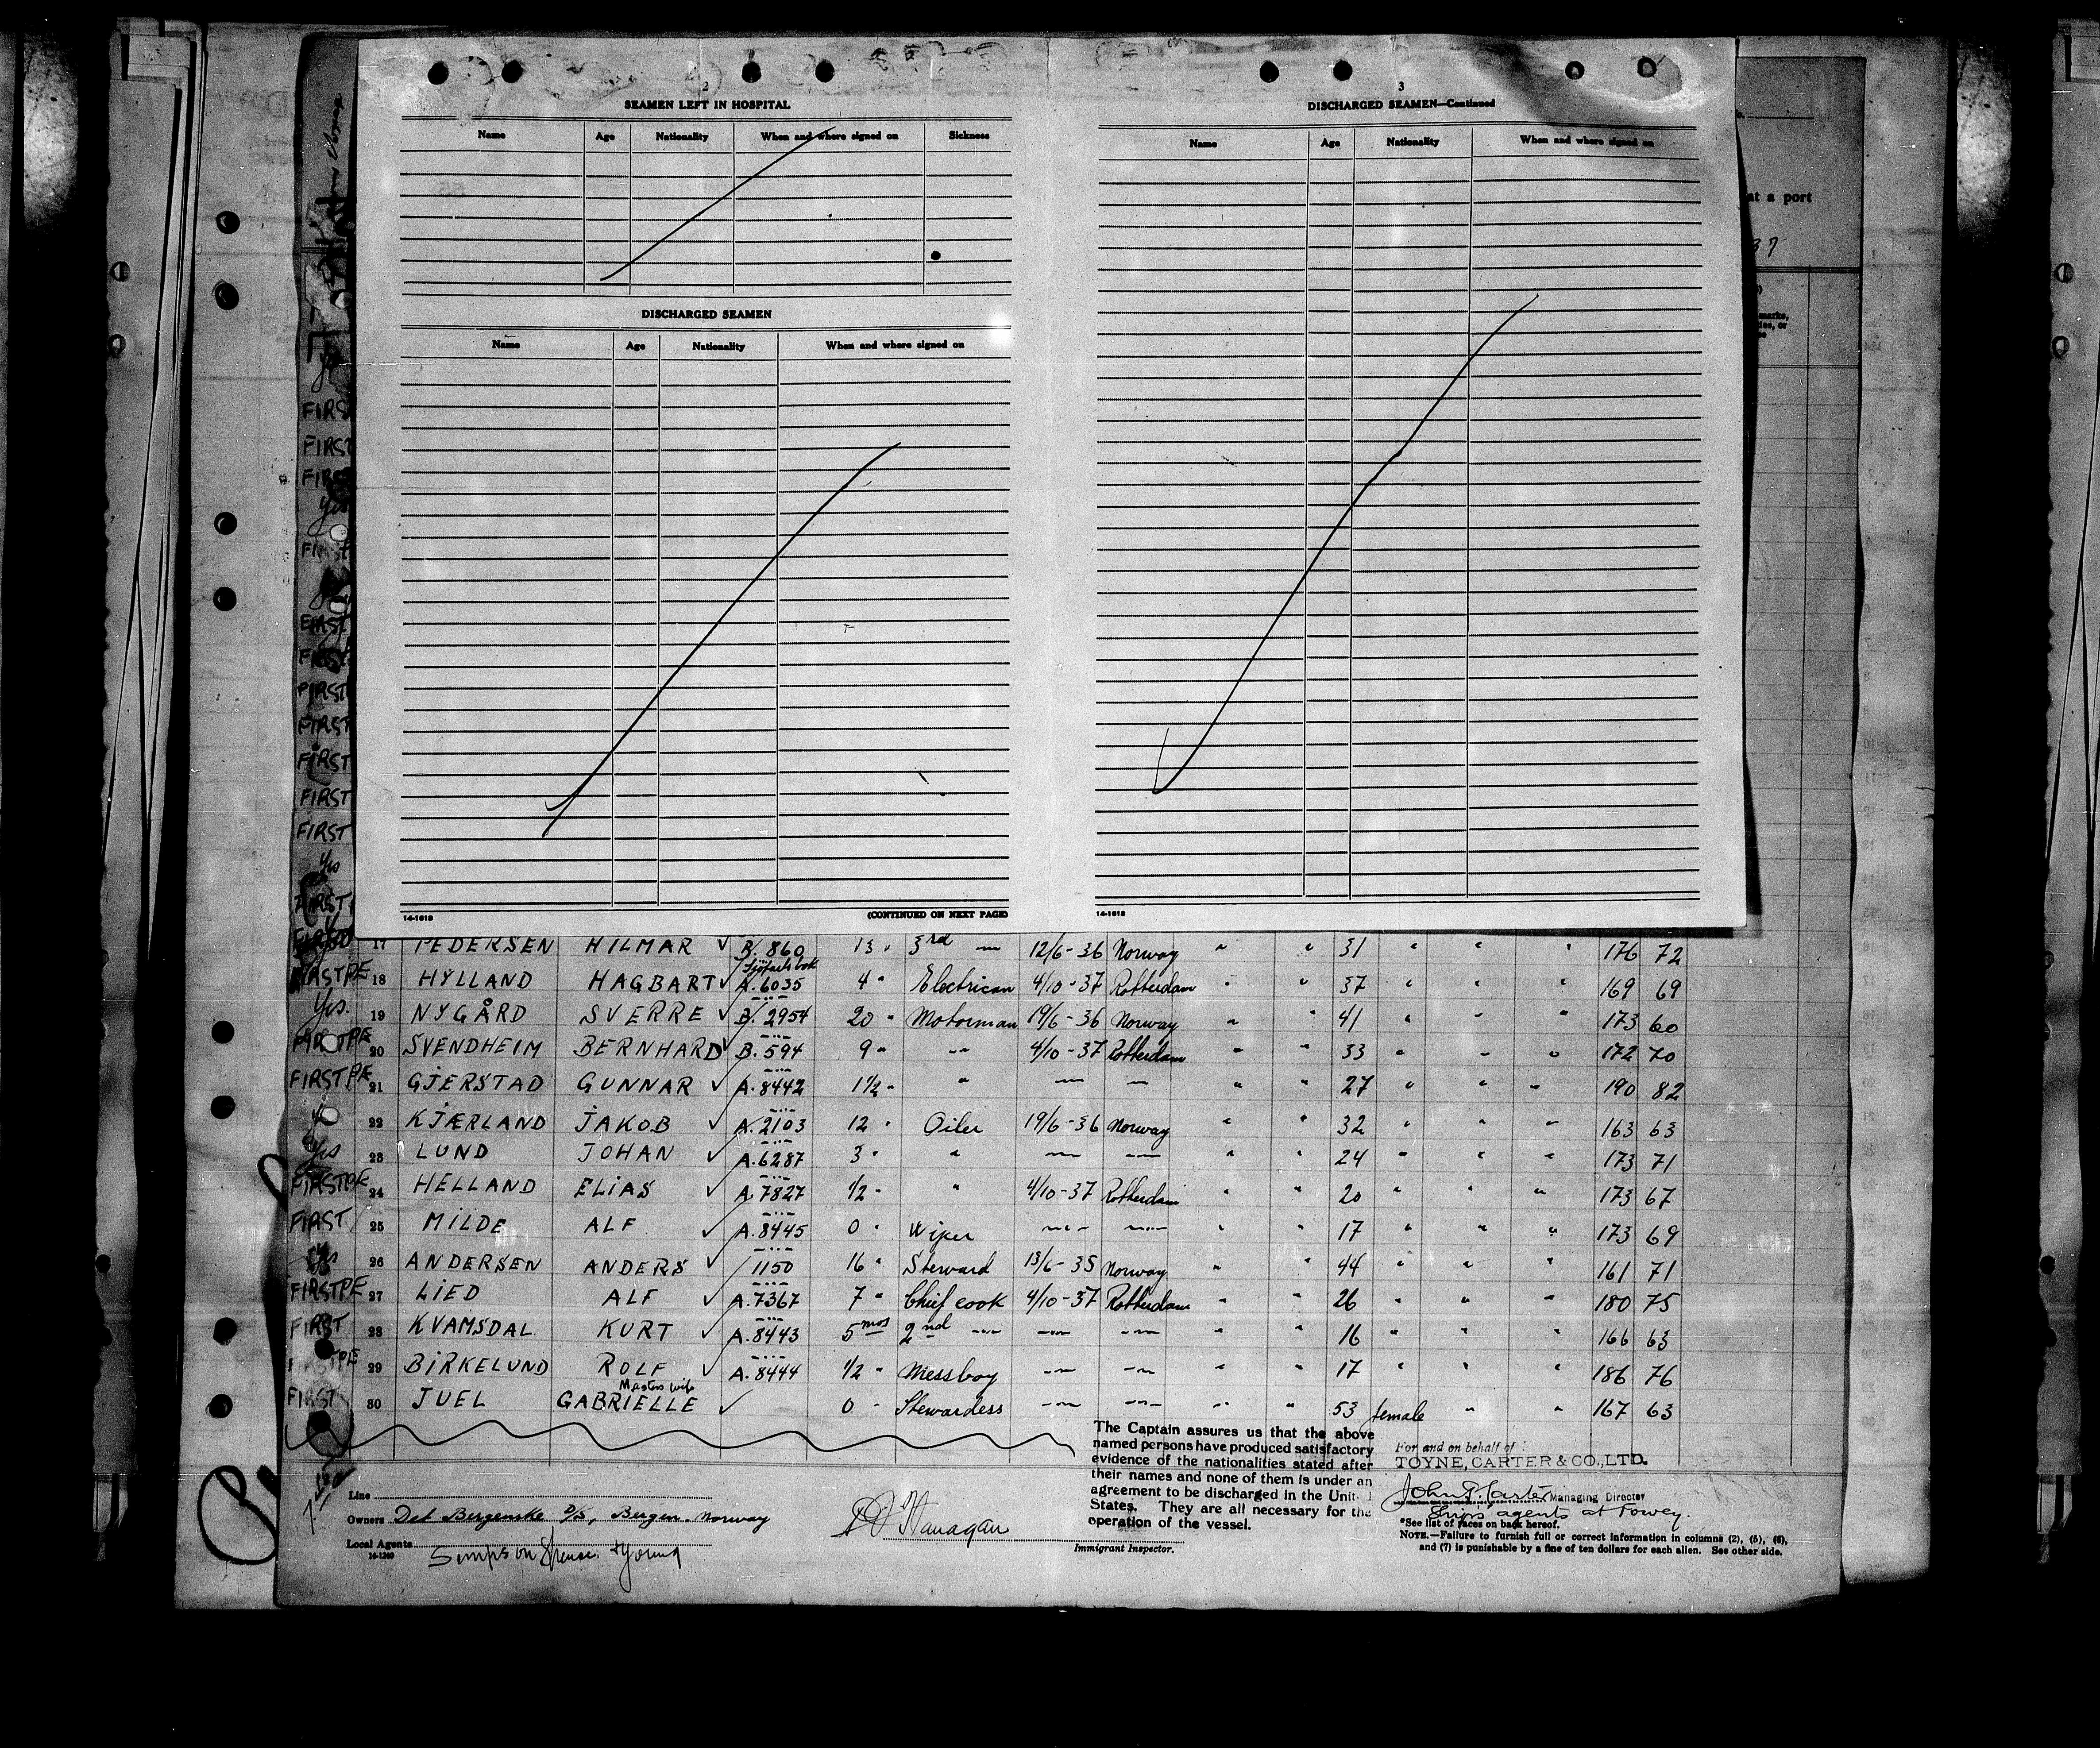 2
SEAMEN LEFT IN HOSPITAL
Name Age Nationality When and where signed on Sickness
DISCHARGED SEAMEN
Name Age Nationality When and where signed on
14-1613 (CONTINUED ON NEXT PAGE)
3
DISCHARGED SEAMEN—Continued
Name Age Nationality When and where signed on
14-1613
at a port
37
marks,
FIRS
FIRST
FIRS
Yes
FIRST
FIRST
FIRST
FIRST
FIRST
FIRST
FIRST
Yes
FIRST
17 PEDERSEN HILMAR ✓ B. 860 13 " 3rd — 12/6-36 Norway " " 31 " " " 176 72
Sjöfartsbok
FIRST PE 18 HYLLAND HAGBART ✓ A.6035 4 " Electrican 4/10-37 Rotterdam " " 37 " " " 169 69
Yes. 19 NYGÅRD SVERRE ✓ B. 2954 20 " Motorman 19/6-36 Norway " " 41 " " " 173 60
FIRST PE 20 SVENDHEIM BERNHARD ✓ B.594 9 " " 4/10-37 Rotterdam " " 33 " " " 172 70
FIRST PE 21 GJERSTAD GUNNAR ✓ A.8442 1½ " " — — " " 27 " " " 190 82
22 KJÆRLAND JAKOB ✓ A.2103 12 " Oiler 19/6-36 Norway " " 32 " " " 163 63
Yes 23 LUND JOHAN ✓ A.6287 3 " " — — " " 24 " " " 173 71
FIRST PE 24 HELLAND ELIAS ✓ A.7827 1/2 " " 4/10-37 Rotterdam " " 20 " " " 173 67
FIRST 25 MILDE ALF ✓ A.8445 0 " Wiper — — " " 17 " " " 173 69
Yes 26 ANDERSEN ANDERS ✓ 1150 16 " Steward 13/6-35 Norway " " 44 " " " 161 71
FIRST PE 27 LIED ALF ✓ A.7367 7 " Chief cook 4/10-37 Rotterdam " " 26 " " " 180 75
FIRST 28 KVAMSDAL KURT ✓ A.8443 5 mos 2nd — — — " " 16 " " " 166 63
FIRST PE 29 BIRKELUND ROLF ✓ A.8444 1/2 " Messboy — — " " 17 " " " 186 76
Masters wife
FIRST 30 JUEL GABRIELLE ✓ 0 " Stewardess — — " " 53 female " " 167 63
The Captain assures us that the above
named persons have produced satisfactory
evidence of the nationalities stated after
their names and none of them is under an
agreement to be discharged in the United
States. They are all necessary for the
operation of the vessel.
For and on behalf of
TOYNE, CARTER & CO., LTD.
Managing Director
Ships agents at Fowey.
*See list of races on back hereof.
NOTE.—Failure to furnish full or correct information in columns (2), (5), (6),
and (7) is punishable by a fine of ten dollars for each alien. See other side.
Line
Owners Det Bergenske D/S, Bergen. Norway
Local Agents Simpson Spence & Young
14-1240
Immigrant Inspector.